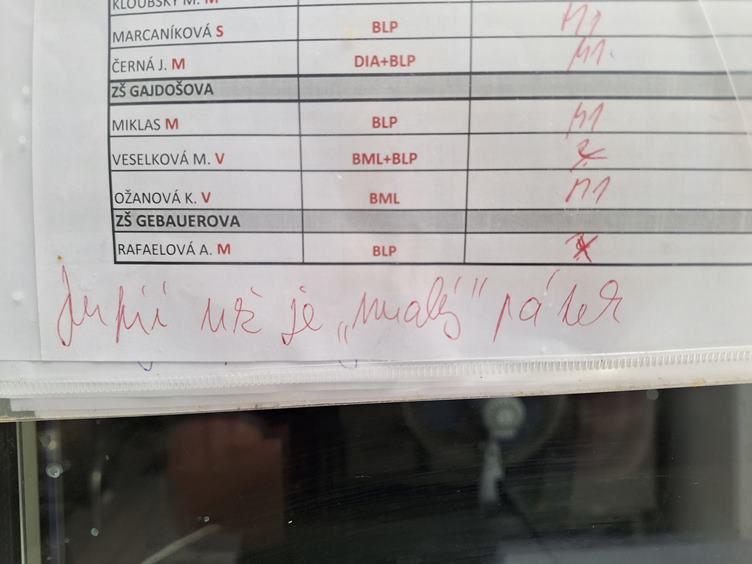 KLOUBSKÝ M. M M1
MARCANÍKOVÁ S BLP M1
ČERNÁ J. M DIA+BLP M1.
ZŠ GAJDOŠOVA
MIKLAS M BLP M1
VESELKOVÁ M. V BML+BLP
OŽANOVÁ K. V BML M1
ZŠ GEBAUEROVA
RAFAELOVÁ A. M BLP
už je „malý" pátek